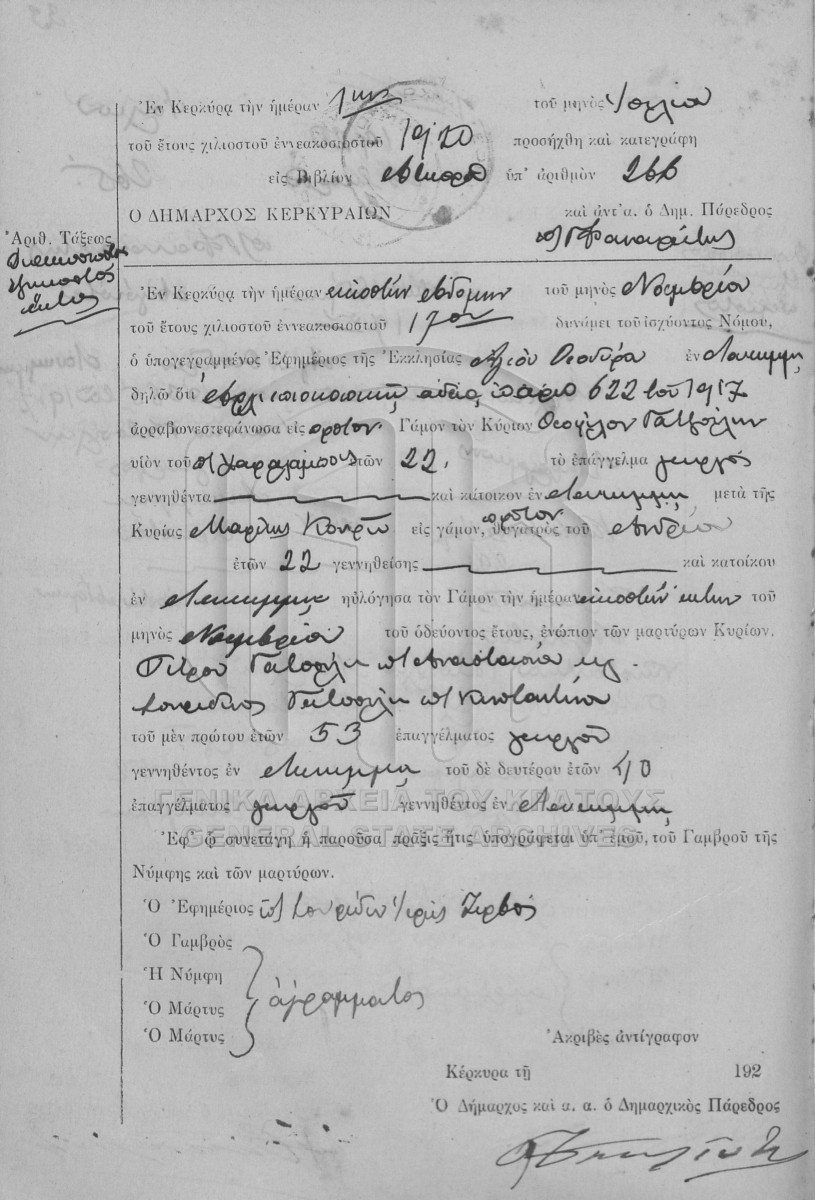 Ἐν Κερκύρᾳ τὴν ἡμέραν 1ην τοῦ μηνὸς
τοῦ ἔτους χιλιοστοῦ ἐννεακοσιοστοῦ 1920 προσήχθη καὶ κατεγράφη
εἰς Βιβλίον ὑπ' ἀριθμὸν 266
Ο ΔΗΜΑΡΧΟΣ ΚΕΡΚΥΡΑΙΩΝ καὶ ἀντ' α. ὁ Δημ. Πάρεδρος
Ἀριθ. Τάξεως
διακοσιοστὸς
ἑξηκοστὸς
ἕκτος
Ἐν Κερκύρᾳ τὴν ἡμέραν εἰκοστὴν ἑβδόμην τοῦ μηνὸς Νοεμβρίου
τοῦ ἔτους χιλιοστοῦ ἐννεακοσιοστοῦ 17ου δυνάμει τοῦ ἰσχύοντος Νόμου,
ὁ ὑπογεγραμμένος Ἐφημέριος τῆς Ἐκκλησίας Ἁγίου Θεοδώρου ἐν Λευκίμμῃ
δηλῶ ὅτι ἀδείᾳ ὑπ' ἀριθ 622 τοῦ 1917
ἀρραβωνεστεφάνωσα εἰς πρῶτον Γάμον τὸν Κύριον Θεόφιλον
υἱὸν τοῦ π Χαραλάμπους ἐτῶν 22. τὸ ἐπάγγελμα γεωργὸς
γεννηθέντα καὶ κάτοικον ἐν Λευκίμμῃ μετὰ τῆς
Κυρίας εἰς γάμον, πρῶτον θυγατρὸς τοῦ Ἀνδρέου
ἐτῶν 22 γεννηθείσης καὶ κατοίκου
ἐν Λευκίμμῃ ηὐλόγησα τὸν Γάμον τὴν ἡμέραν εἰκοστὴν ἕκτην τοῦ
μηνὸς Νοεμβρίου τοῦ ὁδεύοντος ἔτους, ἐνώπιον τῶν μαρτύρων Κυρίων.
Πέτρου π Ἀναστασίου
Σπυρίδωνος π Κωνσταντίνου
τοῦ μὲν πρώτου ἐτῶν 53 ἐπαγγέλματος γεωργοῦ
γεννηθέντος ἐν Λευκίμμῃ τοῦ δὲ δευτέρου ἐτῶν 40
ΓΕΝΙΚΑ ΑΡΧΕΙΑ ΤΟΥ ΚΡΑΤΟΥΣ
ἐπαγγέλματος γεωργοῦ γεννηθέντος ἐν Λευκίμμῃ
GENERAL STATE ARCHIVES
Ἐφ' ᾧ συνετάγη ἡ παροῦσα πρᾶξις ἥτις ὑπογράφεται ὑπ' ἐμοῦ, τοῦ Γαμβροῦ τῆς
Νύμφης καὶ τῶν μαρτύρων.
Ὁ Ἐφημέριος Σπυρίδων ἱερεὺς
Ὁ Γαμβρὸς
Ἡ Νύμφη
ἀγράμματος
Ὁ Μάρτυς
Ὁ Μάρτυς
Ἀκριβὲς ἀντίγραφον
Κέρκυρα τῇ 192
Ὁ Δήμαρχος καὶ α. α. ὁ Δημαρχικὸς Πάρεδρος